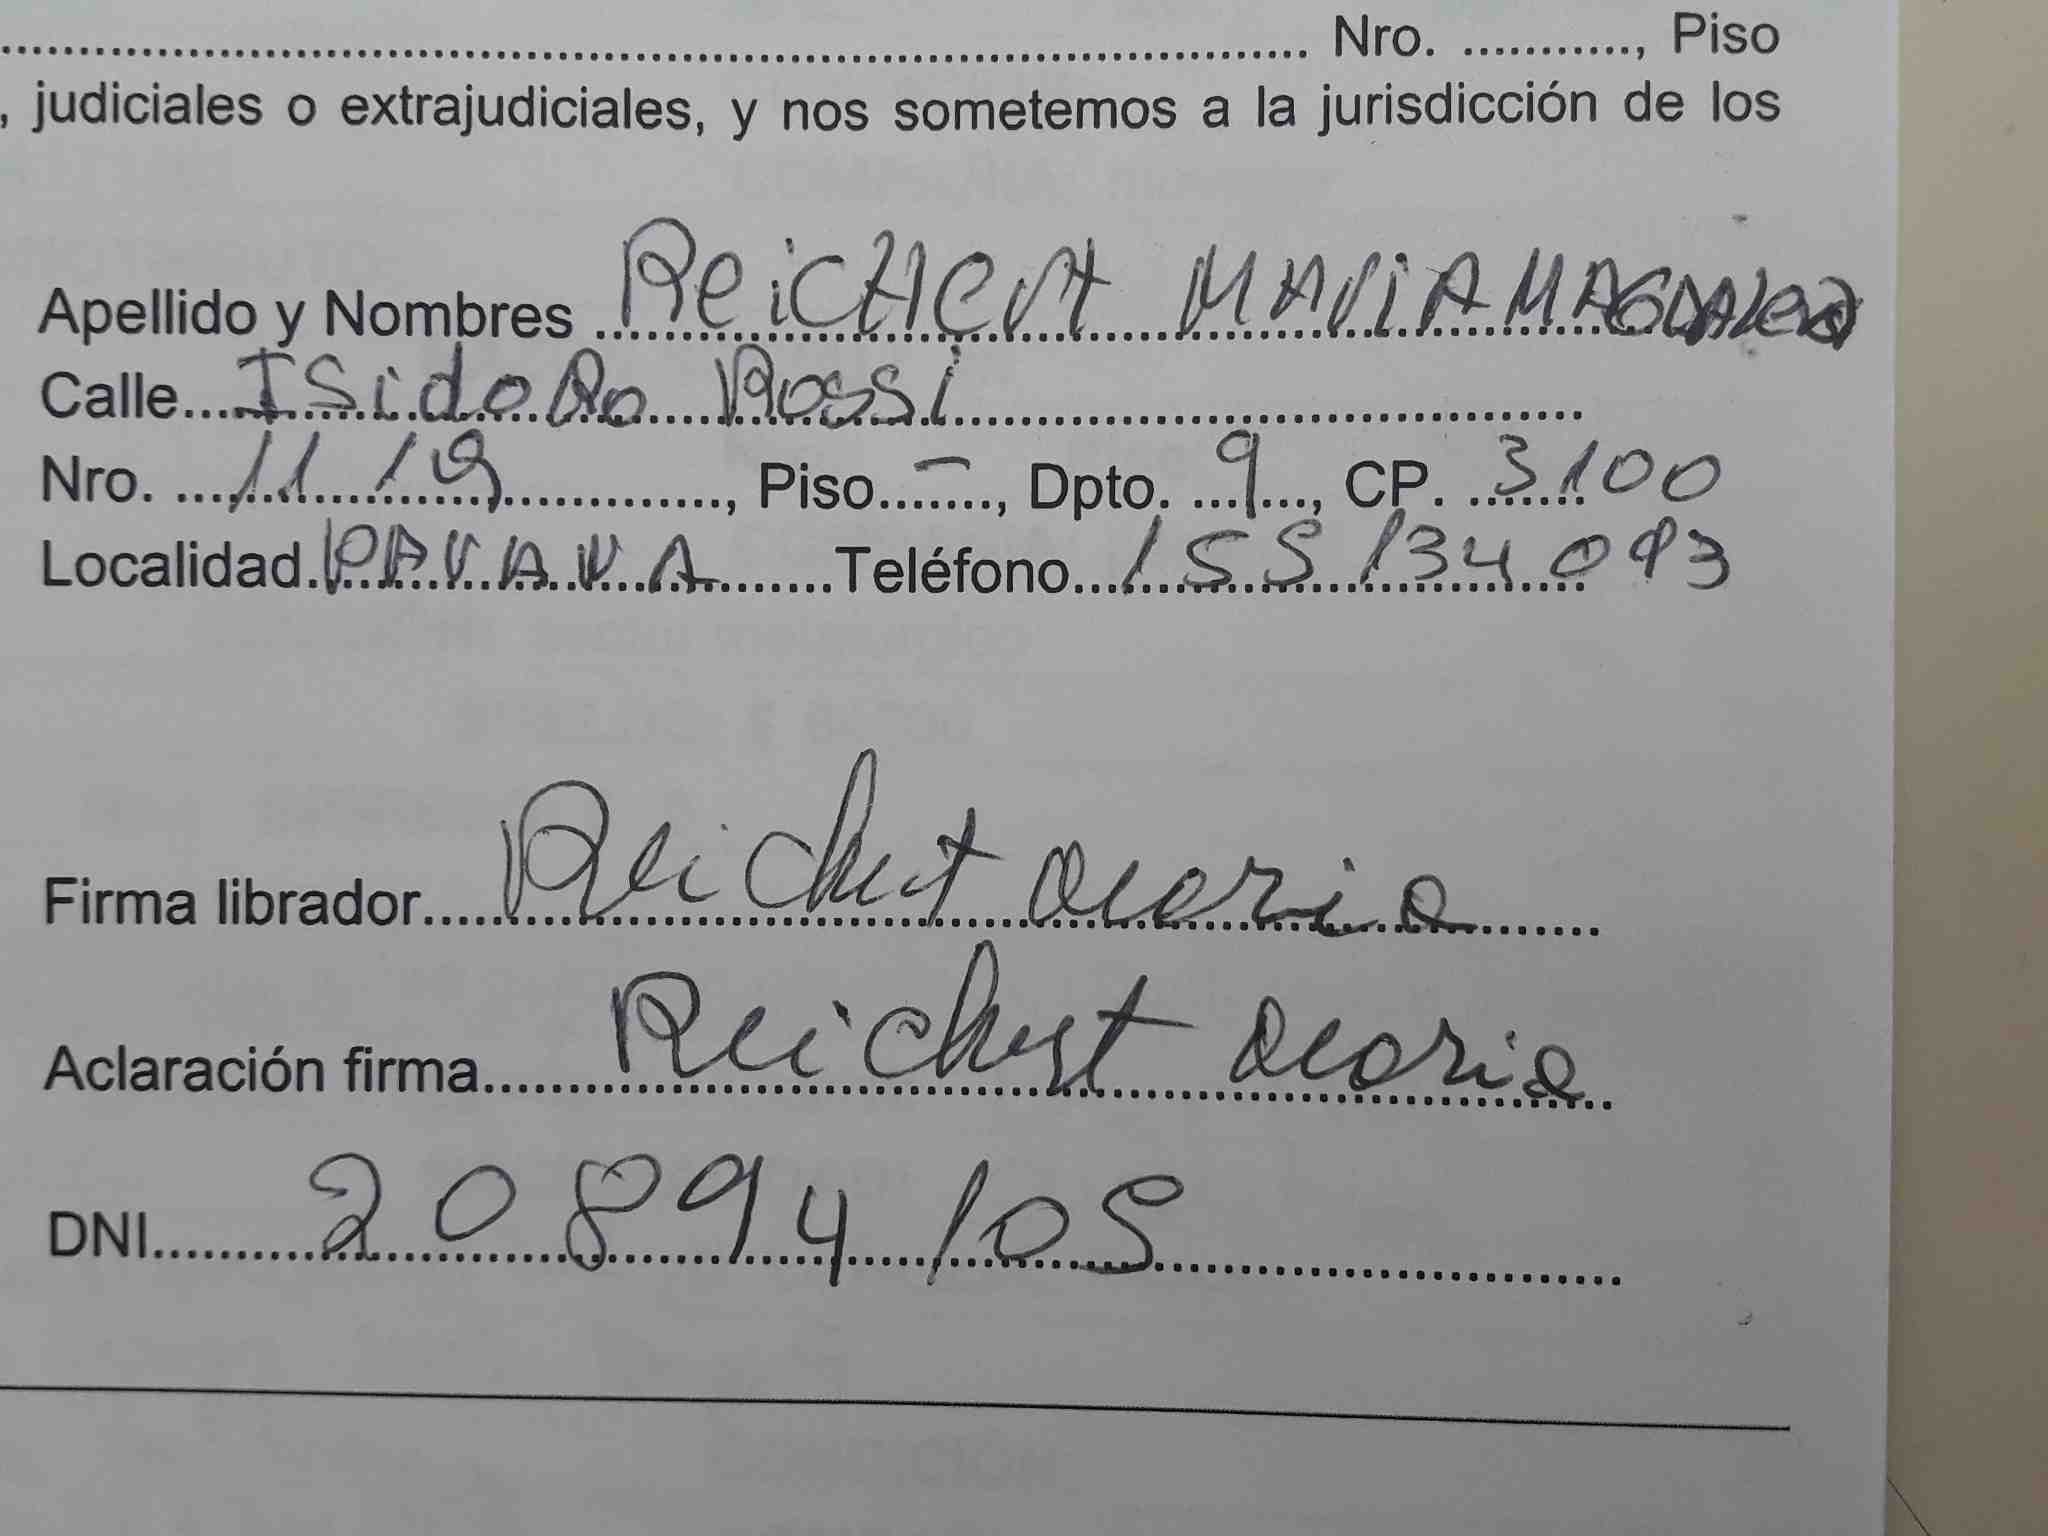 ........................................ Nro. ..........., Piso
, judiciales o extrajudiciales, y nos sometemos a la jurisdicción de los
Apellido y Nombres ReicHert MARiA MAGDALENA
Calle ISidoRo Rossi
Nro. 11 19, Piso -, Dpto. 9, CP. 3100
Localidad PARANA Teléfono 155 134 093
Firma librador Reichert Maria
Aclaración firma Reichert Maria
DNI 20894105